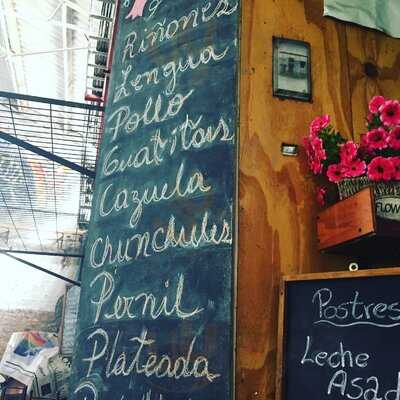 Riñones
Lengua
Pollo
Guatitas
Cazuela
Chunchules
Pernil
Plateada
FLOW
Postres
Leche
Asad